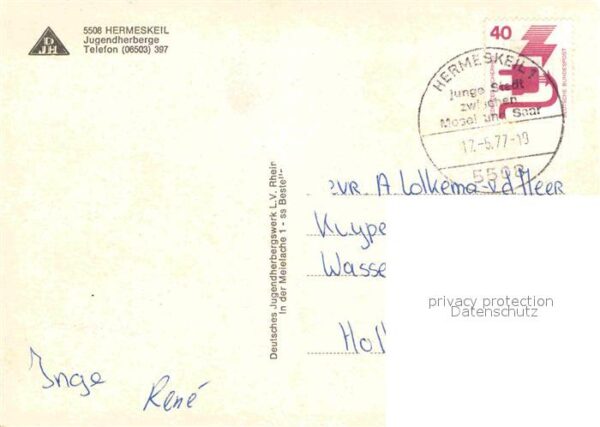 DJH
5508 HERMESKEIL
Jugendherberge
Telefon (06503) 397
40
DEUTSCHE BUNDESPOST
HERMESKEIL 1
Junge Stadt
zwischen
Mosel und Saar
17.-5.77-19
5508
Deutsches Jugendherbergswerk L.V. Rhein
In der Meielache 1 - ss Bestell-
A. Kolkema-vd Meer
Kuype
Wasse
Hol
privacy protection
Datenschutz
Inge
René